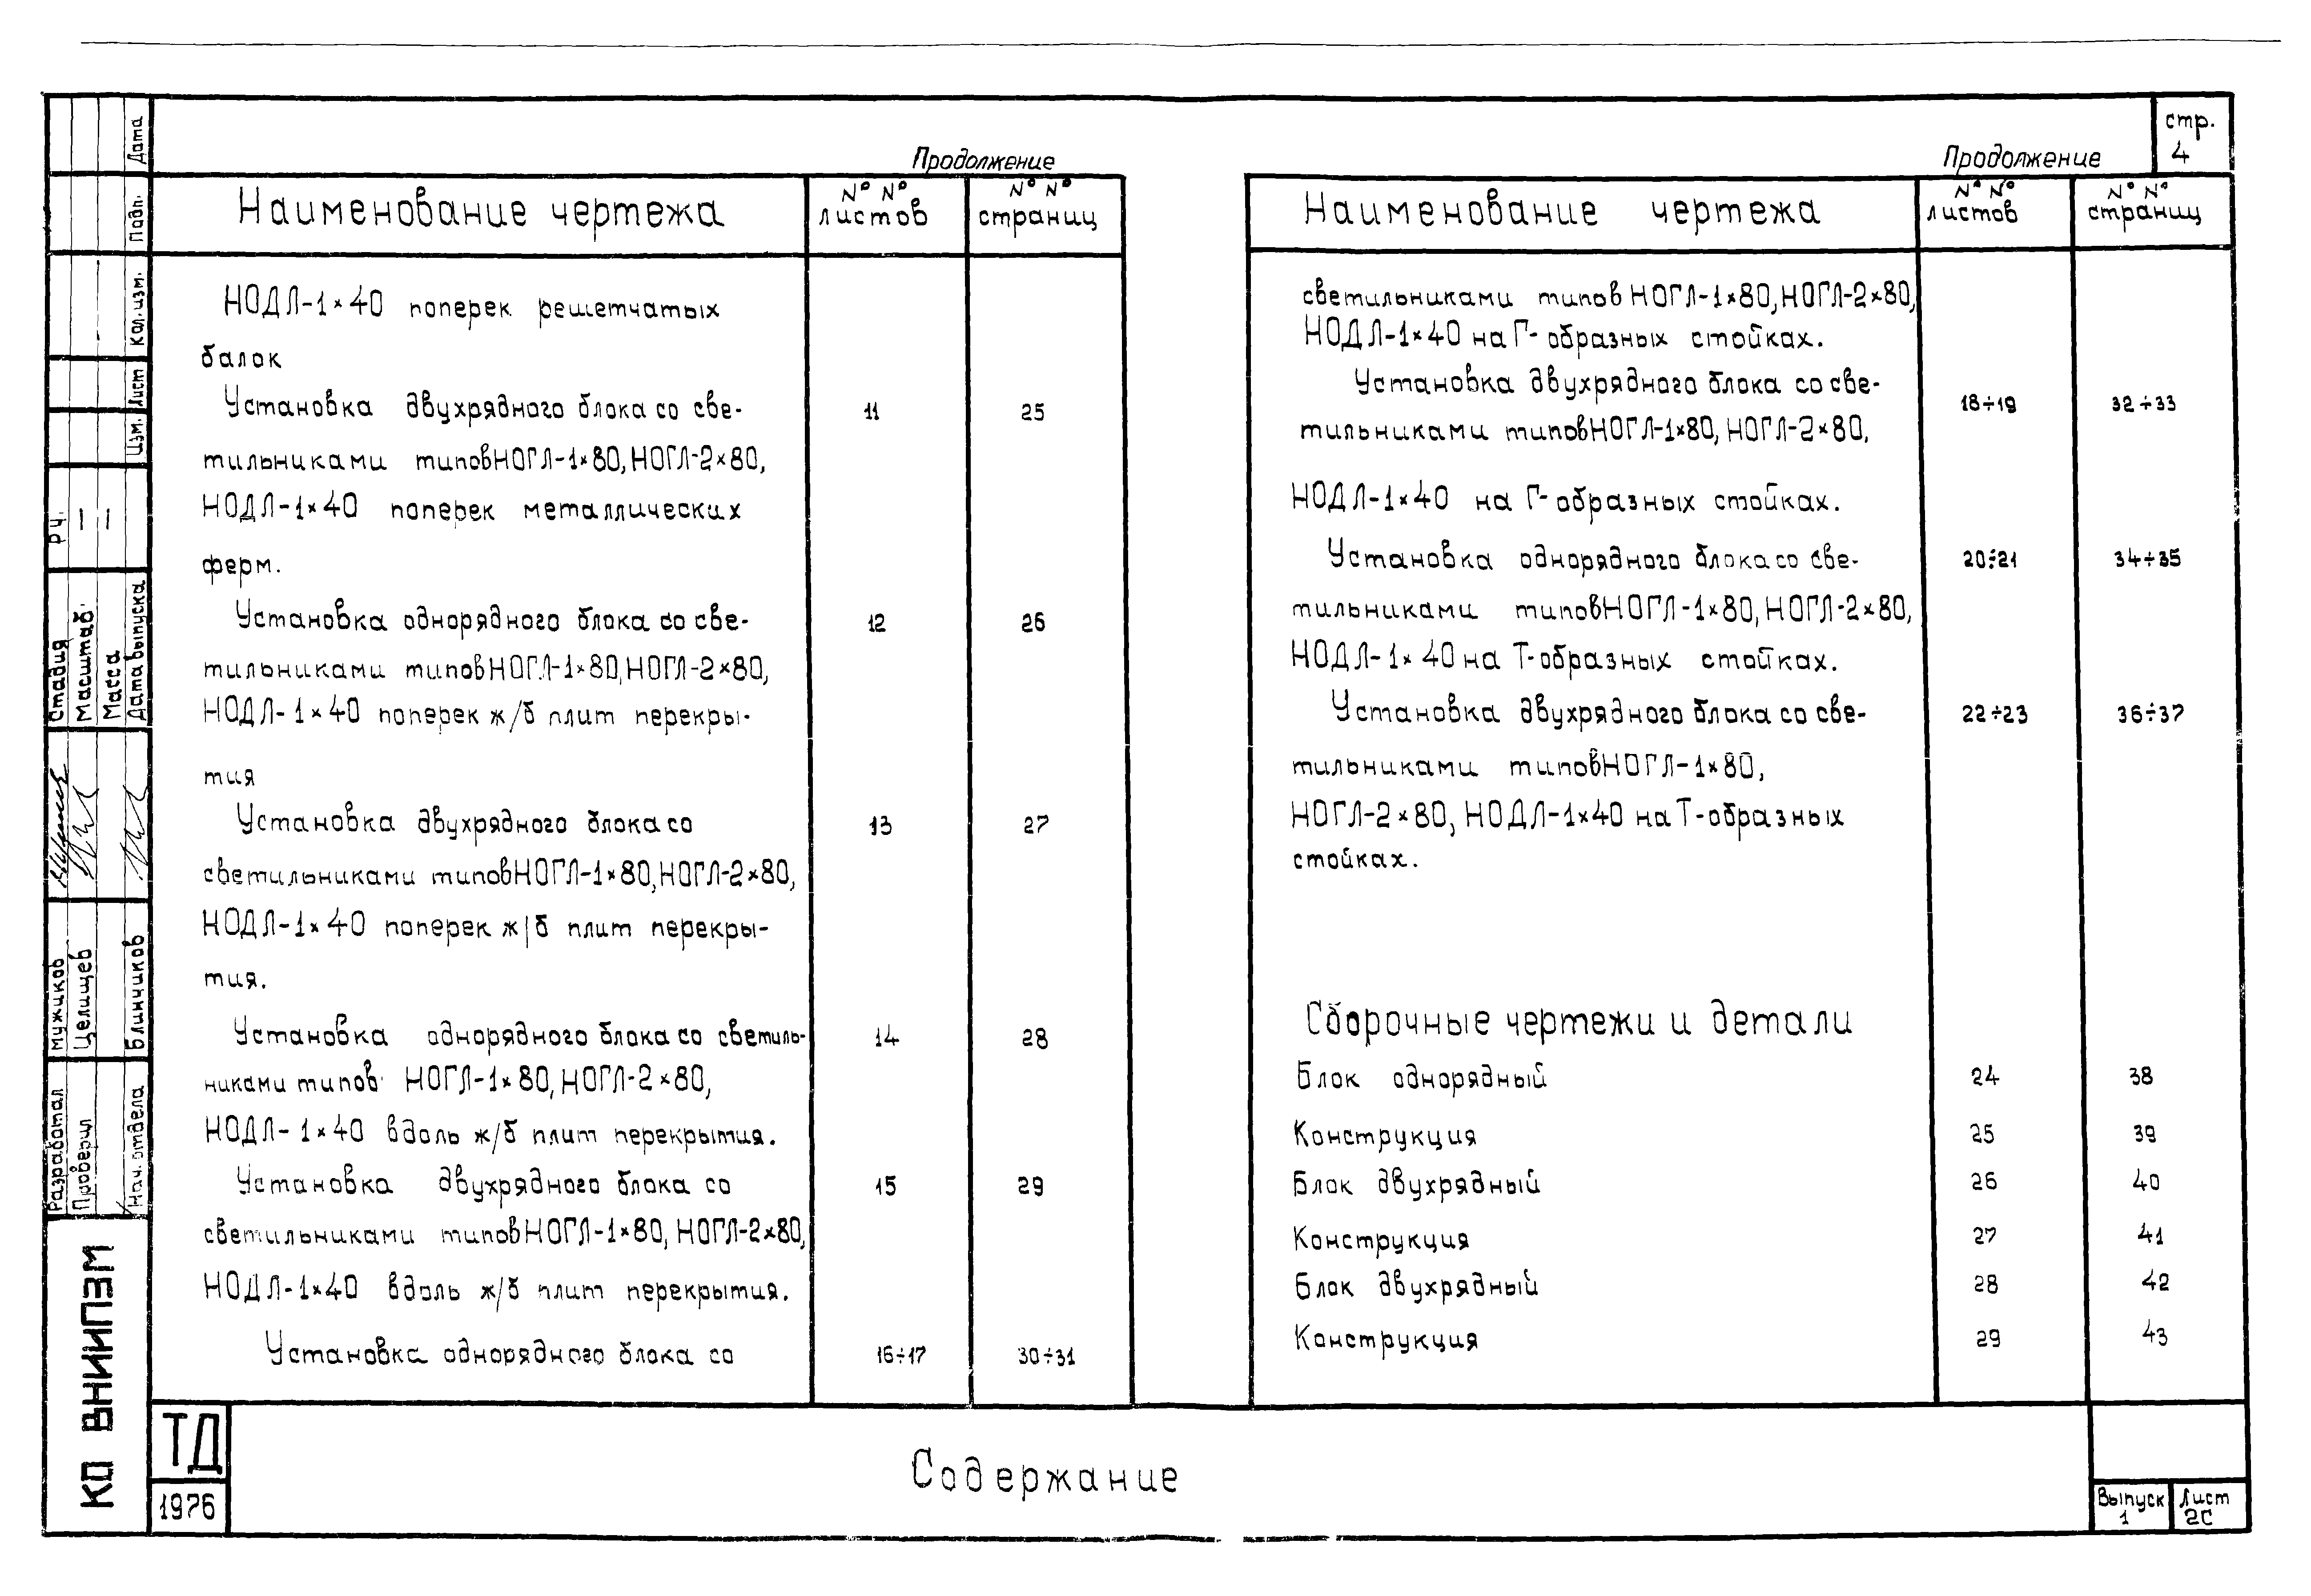 стр.
4
Продолжение
Наименование чертежа
N° N°
листов
N° N°
страниц
НОДЛ-1×40 поперек решетчатых
балок
Установка двухрядного блока со све-
11
25
тильниками типов НОГЛ-1×80, НОГЛ-2×80,
НОДЛ-1×40 поперек металлических
ферм.
Установка однорядного блока со све-
12
26
тильниками типов НОГЛ-1×80, НОГЛ-2×80,
НОДЛ-1×40 поперек ж/б плит перекры-
тия
Установка двухрядного блока со
13
27
светильниками типов НОГЛ-1×80, НОГЛ-2×80,
НОДЛ-1×40 поперек ж/б плит перекры-
тия.
Установка однорядного блока со светиль-
14
28
никами типов НОГЛ-1×80, НОГЛ-2×80,
НОДЛ-1×40 вдоль ж/б плит перекрытия.
Установка двухрядного блока со
15
29
светильниками типов НОГЛ-1×80, НОГЛ-2×80,
НОДЛ-1×40 вдоль ж/б плит перекрытия.
Установка однорядного блока со
16÷17
30÷31
Продолжение
Наименование чертежа
N° N°
листов
N° N°
страниц
светильниками типов НОГЛ-1×80, НОГЛ-2×80,
НОДЛ-1×40 на Г-образных стойках.
Установка двухрядного блока со све-
18÷19
32÷33
тильниками типов НОГЛ-1×80, НОГЛ-2×80,
НОДЛ-1×40 на Г-образных стойках.
Установка однорядного блока со све-
20÷21
34÷35
тильниками типов НОГЛ-1×80, НОГЛ-2×80,
НОДЛ-1×40 на Т-образных стойках.
Установка двухрядного блока со све-
22÷23
36÷37
тильниками типов НОГЛ-1×80,
НОГЛ-2×80, НОДЛ-1×40 на Т-образных
стойках.
Сборочные чертежи и детали
Блок однорядный
24
38
Конструкция
25
39
Блок двухрядный
26
40
Конструкция
27
41
Блок двухрядный
28
42
Конструкция
29
43
Содержание
ТД
1976
Выпуск
1
Лист
2С
КО ВНИИПЭМ
Разработал
Мужиков
Проверил
Целищев
Нач. отдела
Блинчиков
Стадия
РЧ.
Масштаб
—
Масса
—
Дата выпуска
Изм.
Лист
Кол. изм.
Подп.
Дата